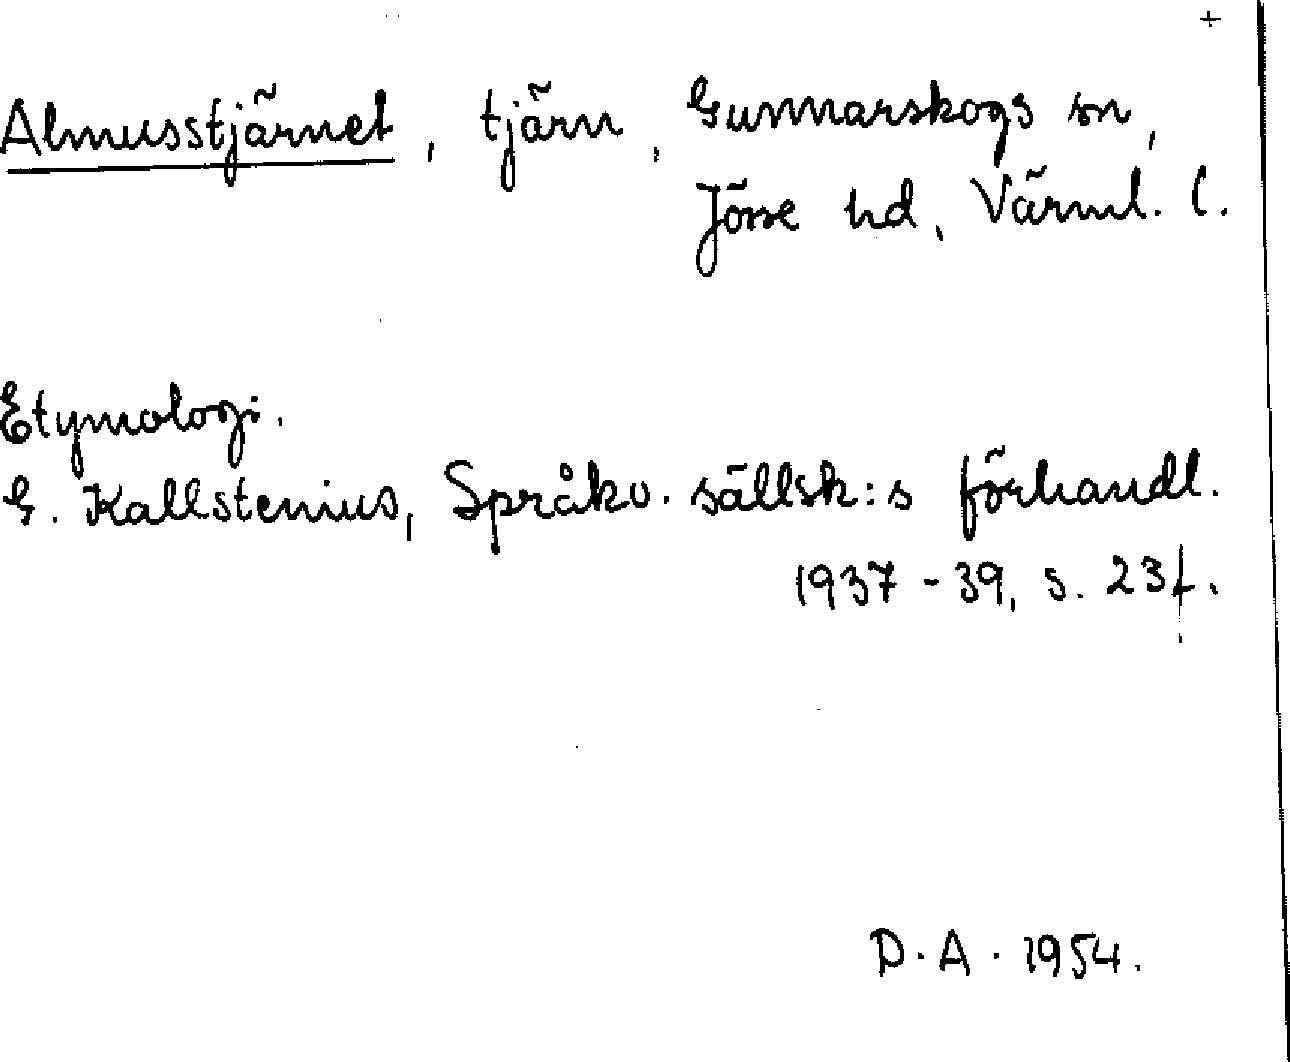 +
Almusstjärnet, tjärn, Gunnarskogs sn,
Jösse hd, Värml. l.
Etymologi.
G. Kallstenius, Språkv. sällsk:s förhandl.
1937-39, s. 23f.
D.A. 1954.